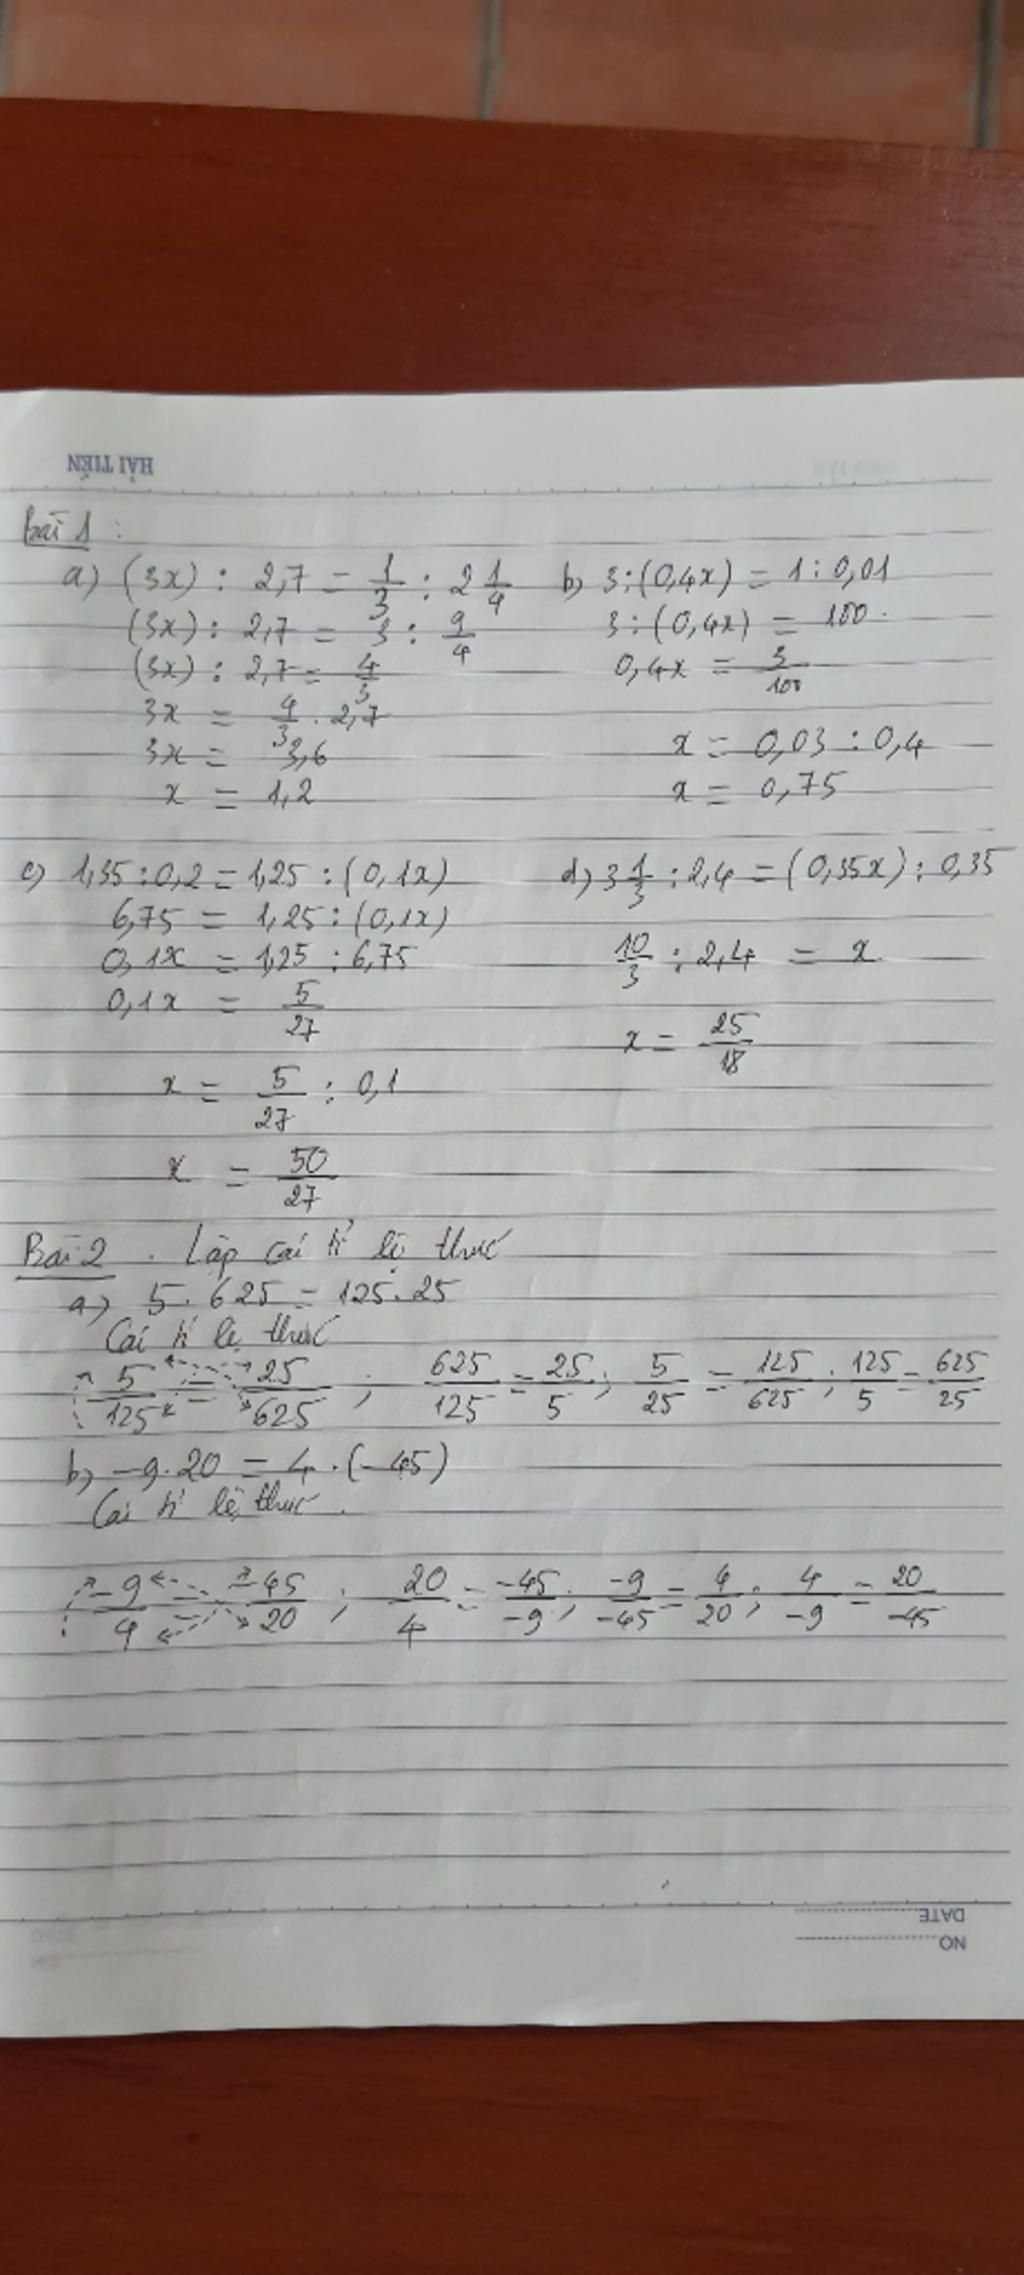 HẢI TIẾN
Bài 1 :
a) (3x) : 2,7 = 1/3 : 2 1/4
(3x) : 2,7 = 3 : 9/4
(3x) : 2,7 = 4/3
3x = 4/3 . 2,7
3x = 3,6
x = 1,2
b) 3 : (0,4x) = 1 : 0,01
3 : (0,4x) = 100
0,4x = 3/100
x = 0,03 : 0,4
x = 0,75
c) 1,35 : 0,2 = 1,25 : (0,1x)
6,75 = 1,25 : (0,1x)
0,1x = 1,25 : 6,75
0,1x = 5/27
x = 5/27 : 0,1
x = 50/27
d) 3 1/3 : 2,4 = (0,35x) : 0,35
10/3 : 2,4 = x
x = 25/18
Bài 2 . Lập các tỉ lệ thức
a) 5 . 625 = 125 . 25
Các tỉ lệ thức
5/125 = 25/625 ; 625/125 = 25/5 ; 5/25 = 125/625 ; 125/5 = 625/25
b) -9 . 20 = 4 . (-45)
Các tỉ lệ thức .
-9/4 = -45/20 ; 20/4 = -45/-9 ; -9/-45 = 4/20 ; 4/-9 = 20/-45
DATE
NO